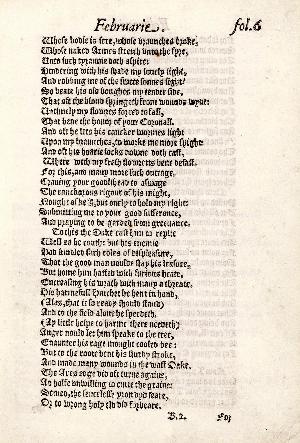 Februarie. fol.6
Whose bodie is sere, whose braunches broke,
Whose naked Armes stretch vnto the fyre,
Vnto such tyrannie doth aspire:
Hindering with his shade my louely light,
And robbing me of the swete sonnes sight?
So beate his old boughes my tender side,
That oft the bloud springeth from wounds wyde:
Vntimely my flowres forced to fall,
That bene the honor of your Coronall.
And oft he lets his cancker wormes light
Vpon my braunches, to worke me more spight:
And oft his hoarie locks downe doth cast,
Where with my fresh flowretts bene defast.
For this, and many more such outrage,
Crauing your goodlihead to aswage
The ranckorous rigour of his might,
Nought aske I, but onely to hold my right:
Submitting me to your good sufferance,
And praying to be garded from greeuance.
To this the Oake cast him to replie
Well as he couth: but his enemie
Had kindled such coles of displeasure,
That the good man noulde stay his leasure,
But home him hasted with furious heate,
Encreasing his wrath with many a threate.
His harmefull Hatchet he hent in hand,
(Alas, that it so ready should stand)
And to the field alone he speedeth.
(Ay little helpe to harme there needeth)
Anger nould let him speake to the tree,
Enaunter his rage mought cooled bee:
But to the roote bent his sturdy stroke,
And made many wounds in the wast Oake.
The Axes edge did oft turne againe,
As halfe vnwilling to cutte the graine:
Semed, the sencelesse yron dyd feare,
Or to wrong holy eld did forbeare.
B.2. For